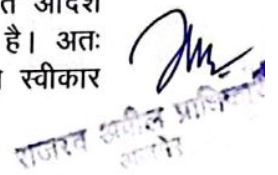 त आदेश
है। अतः
स्वीकार
राजस्व अपील प्राधिकारी